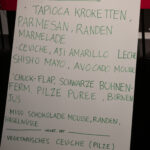 • TAPIOCA KROKETTEN,
PARMESAN, RANDEN
MARMELADE
- CEVICHE, AJI AMARILLO LECHE
SHISHO MAYO, AVOCADO MOUSSE
- CHUCK-FLAP, SCHWARZE BOHNEN-
FERM. PILZE PUREE, BIRNEN
JUS
- MISO SCHOKOLADE MOUSSE, RANDEN,
VEGETARISCHES CEVICHE (PILZE)